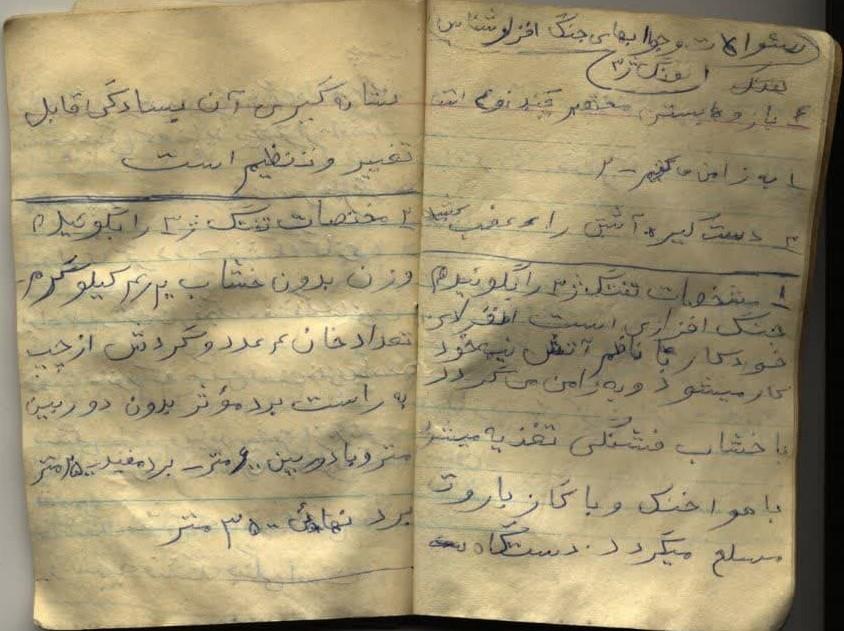 سئوالات و جوابهای جنگ افزار شناسی
تفنگ تفنگ ژ۳
۴ باز و بستن مختصر چند نوع است
۱ به ضامن
۳ دست گیره آتش را به عقب
۱ مشخصات تفنگ ژ۳ را بگوئید؟
جنگ افزاری است انفرادی
خودکار با ناظم آتش نیمه خود
کار میشود و به ضامن می گردد
با خشاب فشنگی تغذیه میشود
با هوا خنک و با گاز باروت
مسلح میگردد. دستگاه
نشانه گیری آن بسادگی قابل
تغییر و تنظیم است
۲ مختصات تفنگ ژ۳ را بگوئید؟
وزن بدون خشاب کیلوگرم
تعداد خان ۴ عدد و گردش از چپ
به راست برد مؤثر بدون دوربین
متر و با دوربین ۶۰۰ متر - برد مفید متر
برد نهائی ۳۵۰۰ متر